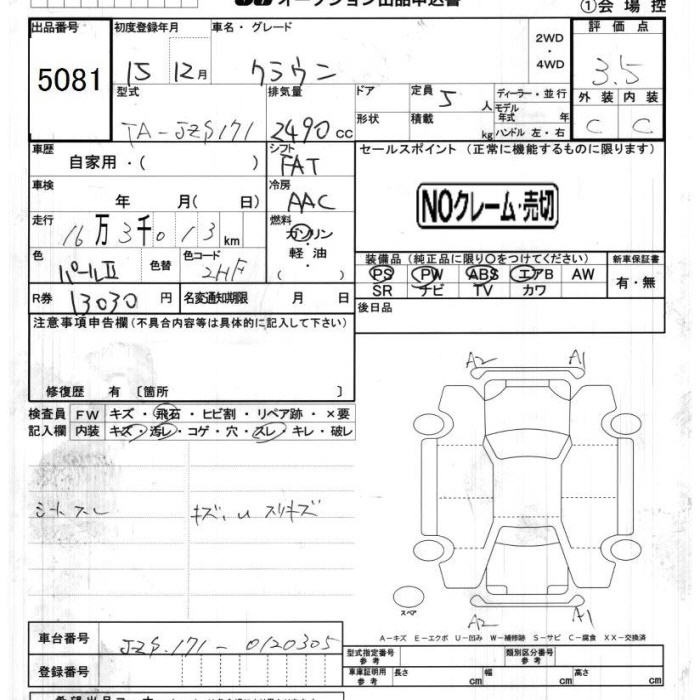 オークション出品申込書 ①会場控
出品番号 初度登録年月 車名・グレード 評価点
5081 15 12月 クラウン 2WD・4WD 3.5
型式 排気量 ドア 定員 5人 ディーラー・並行 外装 内装
TA-JZS171 2490cc 形状 積載 kg モデル年式 年 ハンドル 左・右 C C
車歴 自家用・( ) シフト FAT セールスポイント (正常に機能するものに限ります)
車検 年 月( 日) 冷房 AAC NOクレーム・売切
走行 16万3千013km 燃料 ガソリン
軽油
( )
色 パールII 色替 色コード 2HF
装備品 (純正品に限り○をつけてください) 新車保証書
PS PW ABS エアB AW 有・無
SR ナビ TV カワ
R券 13030円 名変通知期限 月 日 後日品
注意事項申告欄 (不具合内容等は具体的に記入して下さい)
修復歴 有 〔箇所 〕
A2 A1
検査員 FW キズ・飛石・ヒビ割・リペア跡・×要
記入欄 内装 キズ・汚レ・コゲ・穴・スレ・キレ・破レ
シートスレ キズ、U スリキズ
スペア A2 A1
A-キズ E-エクボ U-凹み W-補修跡 S-サビ C-腐食 XX-交換済
車台番号 JZS171-0120305 型式指定番号 参考 類別区分番号 参考
登録番号 車庫証明用 参考 長さ cm 幅 cm 高さ cm
希望出品コーナー